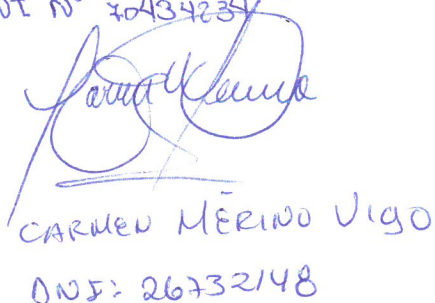 Nº 70434234
CARMEN MERINO VIGO
DNI: 26732148